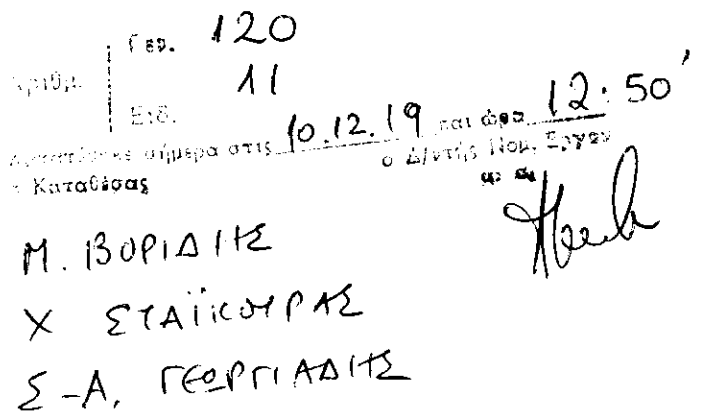 Γεν. 120
Αριθμ.
11
Ειδ.
Κατατέθηκε σήμερα στις 10.12.19 και ώρα 12:50'
ο Δ/ντής Νομ. Εργου
ο Καταθέσας
Μ. ΒΟΡΙΔΗΣ
Χ ΣΤΑΪΚΟΥΡΑΣ
Σ-Α. ΓΕΩΡΓΙΑΔΗΣ